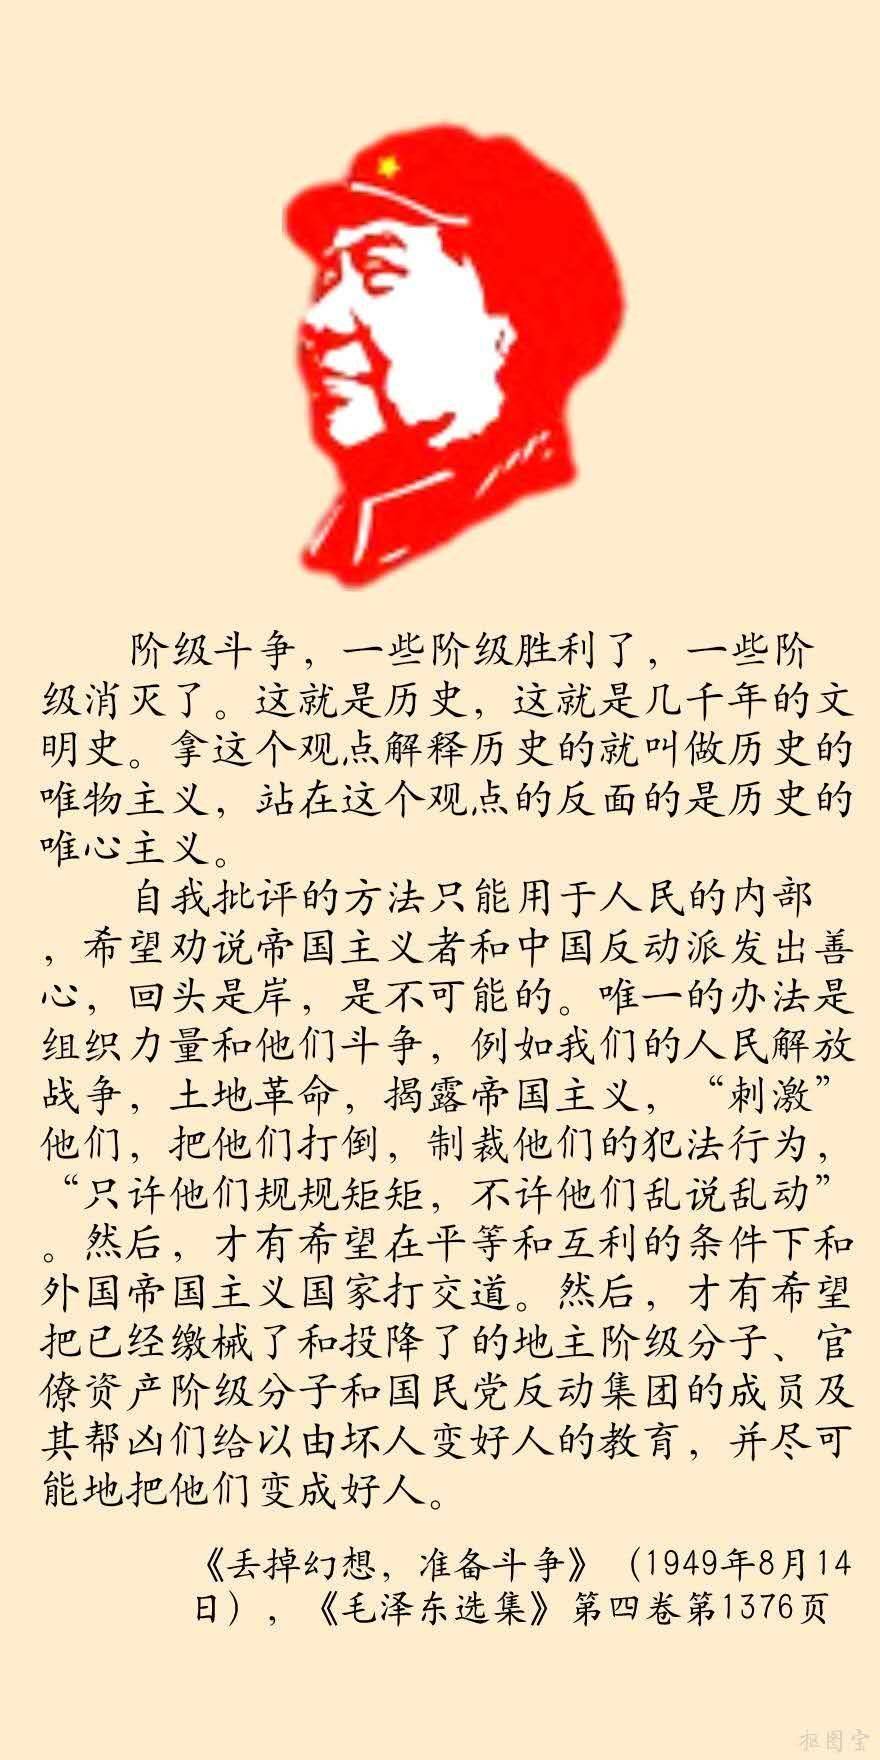 阶级斗争，一些阶级胜利了，一些阶
级消灭了。这就是历史，这就是几千年的文
明史。拿这个观点解释历史的就叫做历史的
唯物主义，站在这个观点的反面的是历史的
唯心主义。
自我批评的方法只能用于人民的内部
，希望劝说帝国主义者和中国反动派发出善
心，回头是岸，是不可能的。唯一的办法是
组织力量和他们斗争，例如我们的人民解放
战争，土地革命，揭露帝国主义，“刺激”
他们，把他们打倒，制裁他们的犯法行为，
“只许他们规规矩矩，不许他们乱说乱动”
。然后，才有希望在平等和互利的条件下和
外国帝国主义国家打交道。然后，才有希望
把已经缴械了和投降了的地主阶级分子、官
僚资产阶级分子和国民党反动集团的成员及
其帮凶们给以由坏人变好人的教育，并尽可
能地把他们变成好人。
《丢掉幻想，准备斗争》（1949年8月14
日），《毛泽东选集》第四卷第1376页
抠图宝